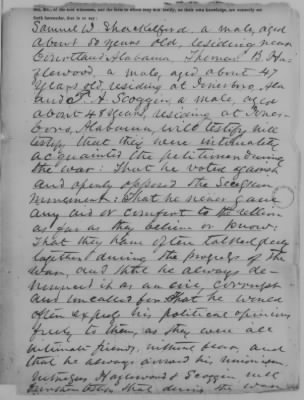 Samuel W. Shackelford, a male, aged
about 50 years old, residing near
Courtland Alabama. Thomas B. Ha-
zlewood, a male, aged about 47
years old, residing at Jonesboro, Ala
and F. A. Scoggin, a male, aged
about 45 years, residing at Jones-
boro, Alabama, will testify
testify that they were intimately
acquainted the petitioner during
the war: That he voted against
and openly opposed the Secession
movement: That he never gave
any aid or comfort to the rebellion
as far as they believe or know:
That they have often talked
together during the progress of the
war, and that he always de-
nounced it as an evil, corrupt
and uncalled for. That he would
often express his political opinions
freely to them, as they were all
intimate friends, without fear, and
that he always avowed his unionism.
Witnesses Hazlewood & Scoggin will
that during the war